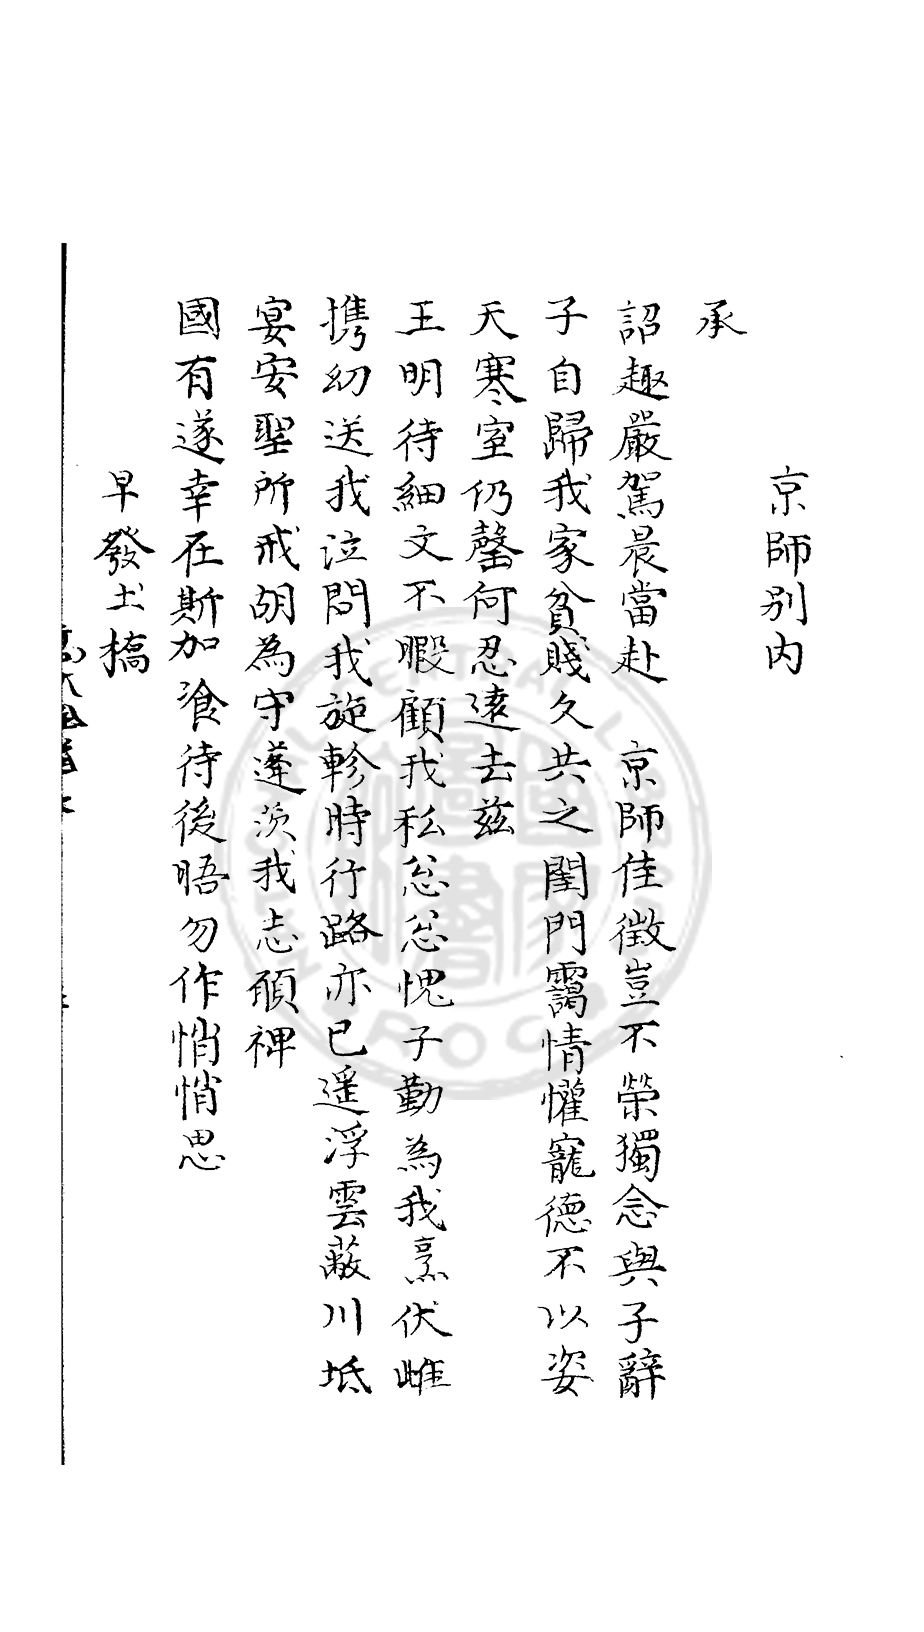 京師別内
承
詔趣嚴駕晨當赴　京師佳徵豈不榮獨念與子辭
子自歸我家貧賤久共之閨門靄情懽寵德不以姿
天寒室仍罄何忍遠去茲
王明待細文不暇顧我私忩忩愧子勤為我烹伏雌
攜幼送我泣問我旋軫時行路亦已遥浮雲蔽川坻
宴安聖所戒胡為守蓬茨我志願裨
國有遂幸在斯加飡待後晤勿作悄悄思
早發土橋